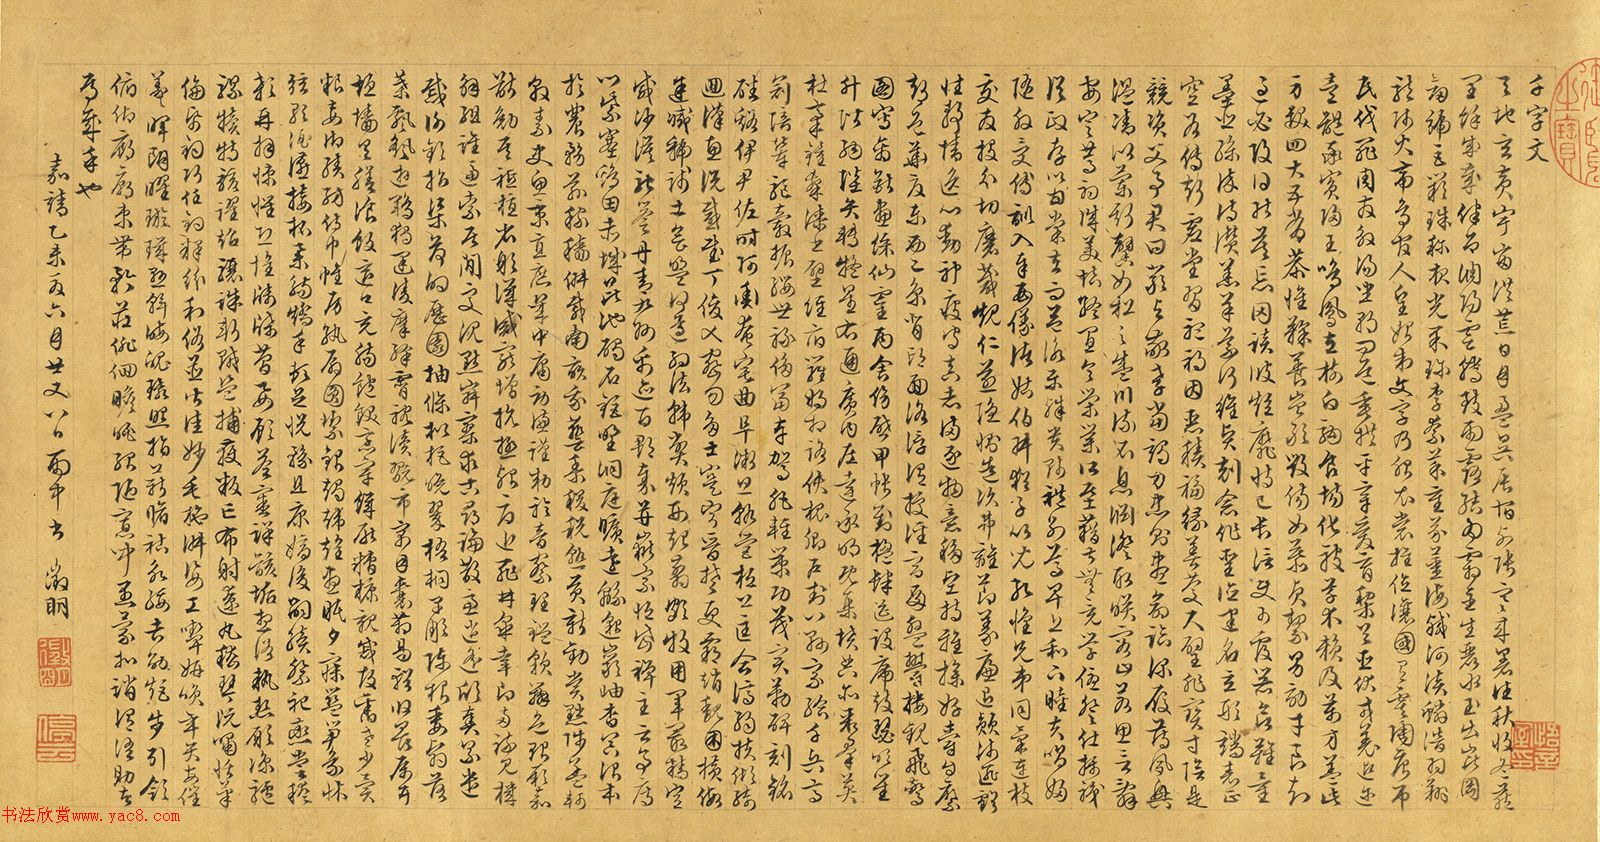 千字文
天地玄黃宇宙洪荒日月盈昃辰宿列張寒來暑往秋收冬藏
閏餘成歲律呂調陽雲騰致雨露結為霜金生麗水玉出崑岡
劍號巨闕珠稱夜光果珍李柰菜重芥薑海鹹河淡鱗潛羽翔
龍師火帝鳥官人皇始制文字乃服衣裳推位讓國有虞陶唐弔
民伐罪周發殷湯坐朝問道垂拱平章愛育黎首臣伏戎羌遐邇
壹體率賓歸王鳴鳳在樹白駒食場化被草木賴及萬方蓋此
身髮四大五常恭惟鞠養豈敢毀傷女慕貞潔男效才良知
過必改得能莫忘罔談彼短靡恃己長信使可覆器欲難量
墨悲絲染詩讚羔羊景行維賢剋念作聖德建名立形端表正
空谷傳聲虛堂習聽禍因惡積福緣善慶尺璧非寶寸陰是
競資父事君曰嚴與敬孝當竭力忠則盡命臨深履薄夙興
溫凊似蘭斯馨如松之盛川流不息淵澄取映容止若思言辭
安定篤初誠美慎終宜令榮業所基籍甚無竟學優登仕攝職
從政存以甘棠去而益詠樂殊貴賤禮別尊卑上和下睦夫唱婦
隨外受傅訓入奉母儀諸姑伯叔猶子比兒孔懷兄弟同氣連枝
交友投分切磨箴規仁慈隱惻造次弗離節義廉退顛沛匪虧
性靜情逸心動神疲守真志滿逐物意移堅持雅操好爵自縻
都邑華夏東西二京背邙面洛浮渭據涇宮殿盤鬱樓觀飛驚
圖寫禽獸畫綵仙靈丙舍傍啟甲帳對楹肆筵設席鼓瑟吹笙
升階納陛弁轉疑星右通廣內左達承明既集墳典亦聚群英
杜稾鍾隸漆書壁經府羅將相路俠槐卿戶封八縣家給千兵高
冠陪輦驅轂振纓世祿侈富車駕肥輕策功茂實勒碑刻銘
磻谿伊尹佐時阿衡奄宅曲阜微旦孰營桓公匡合濟弱扶傾綺
迴漢惠說感武丁俊乂密勿多士寔寧晉楚更霸趙魏困橫假
途滅虢踐土會盟何遵約法韓弊煩刑起翦頗牧用軍最精宣
威沙漠馳譽丹青九州禹迹百郡秦并嶽宗恆岱禪主云亭雁
門紫塞雞田赤城昆池碣石鉅野洞庭曠遠綿邈巖岫杳冥治本
於農務茲稼穡俶載南畝我藝黍稷稅熟貢新勸賞黜陟孟軻
敦素史魚秉直庶幾中庸勞謙謹敕聆音察理鑑貌辨色貽厥嘉
猷勉其祗植省躬譏誡寵增抗極殆辱近恥林皋幸即兩疏見機
解組誰逼索居閒處沈默寂寥求古尋論散慮逍遙欣奏累遣
慼謝歡招渠荷的歷園莽抽條枇杷晚翠梧桐早彫陳根委翳落
葉飄颻遊鵾獨運凌摩絳霄耽讀翫市寓目囊箱易輶攸畏屬耳
垣牆具膳湌飯適口充腸飽飫烹宰飢厭糟糠親戚故舊老少異
糧妾御績紡侍巾帷房紈扇圓潔銀燭煒煌晝眠夕寐藍筍象床
絃歌酒讌接杯舉觴矯手頓足悅豫且康嫡後嗣續祭祀蒸嘗稽
顙再拜悚懼恐惶牋牒簡要顧答審詳骸垢想浴執熱願涼驢
騾犢特駭躍超驤誅斬賊盜捕獲叛亡布射遼丸嵇琴阮嘯恬筆
倫紙鈞巧任釣釋紛利俗並皆佳妙毛施淑姿工顰妍笑年矢每催
羲暉朗曜璇璣懸斡晦魄環照指薪脩祜永綏吉劭矩步引領
俯仰廊廟束帶矜莊徘徊瞻眺孤陋寡聞愚蒙等誚謂語助者
焉哉乎也
嘉靖乙未夏六月廿又八日雨中書 徵明
书法欣赏www.yac8.com